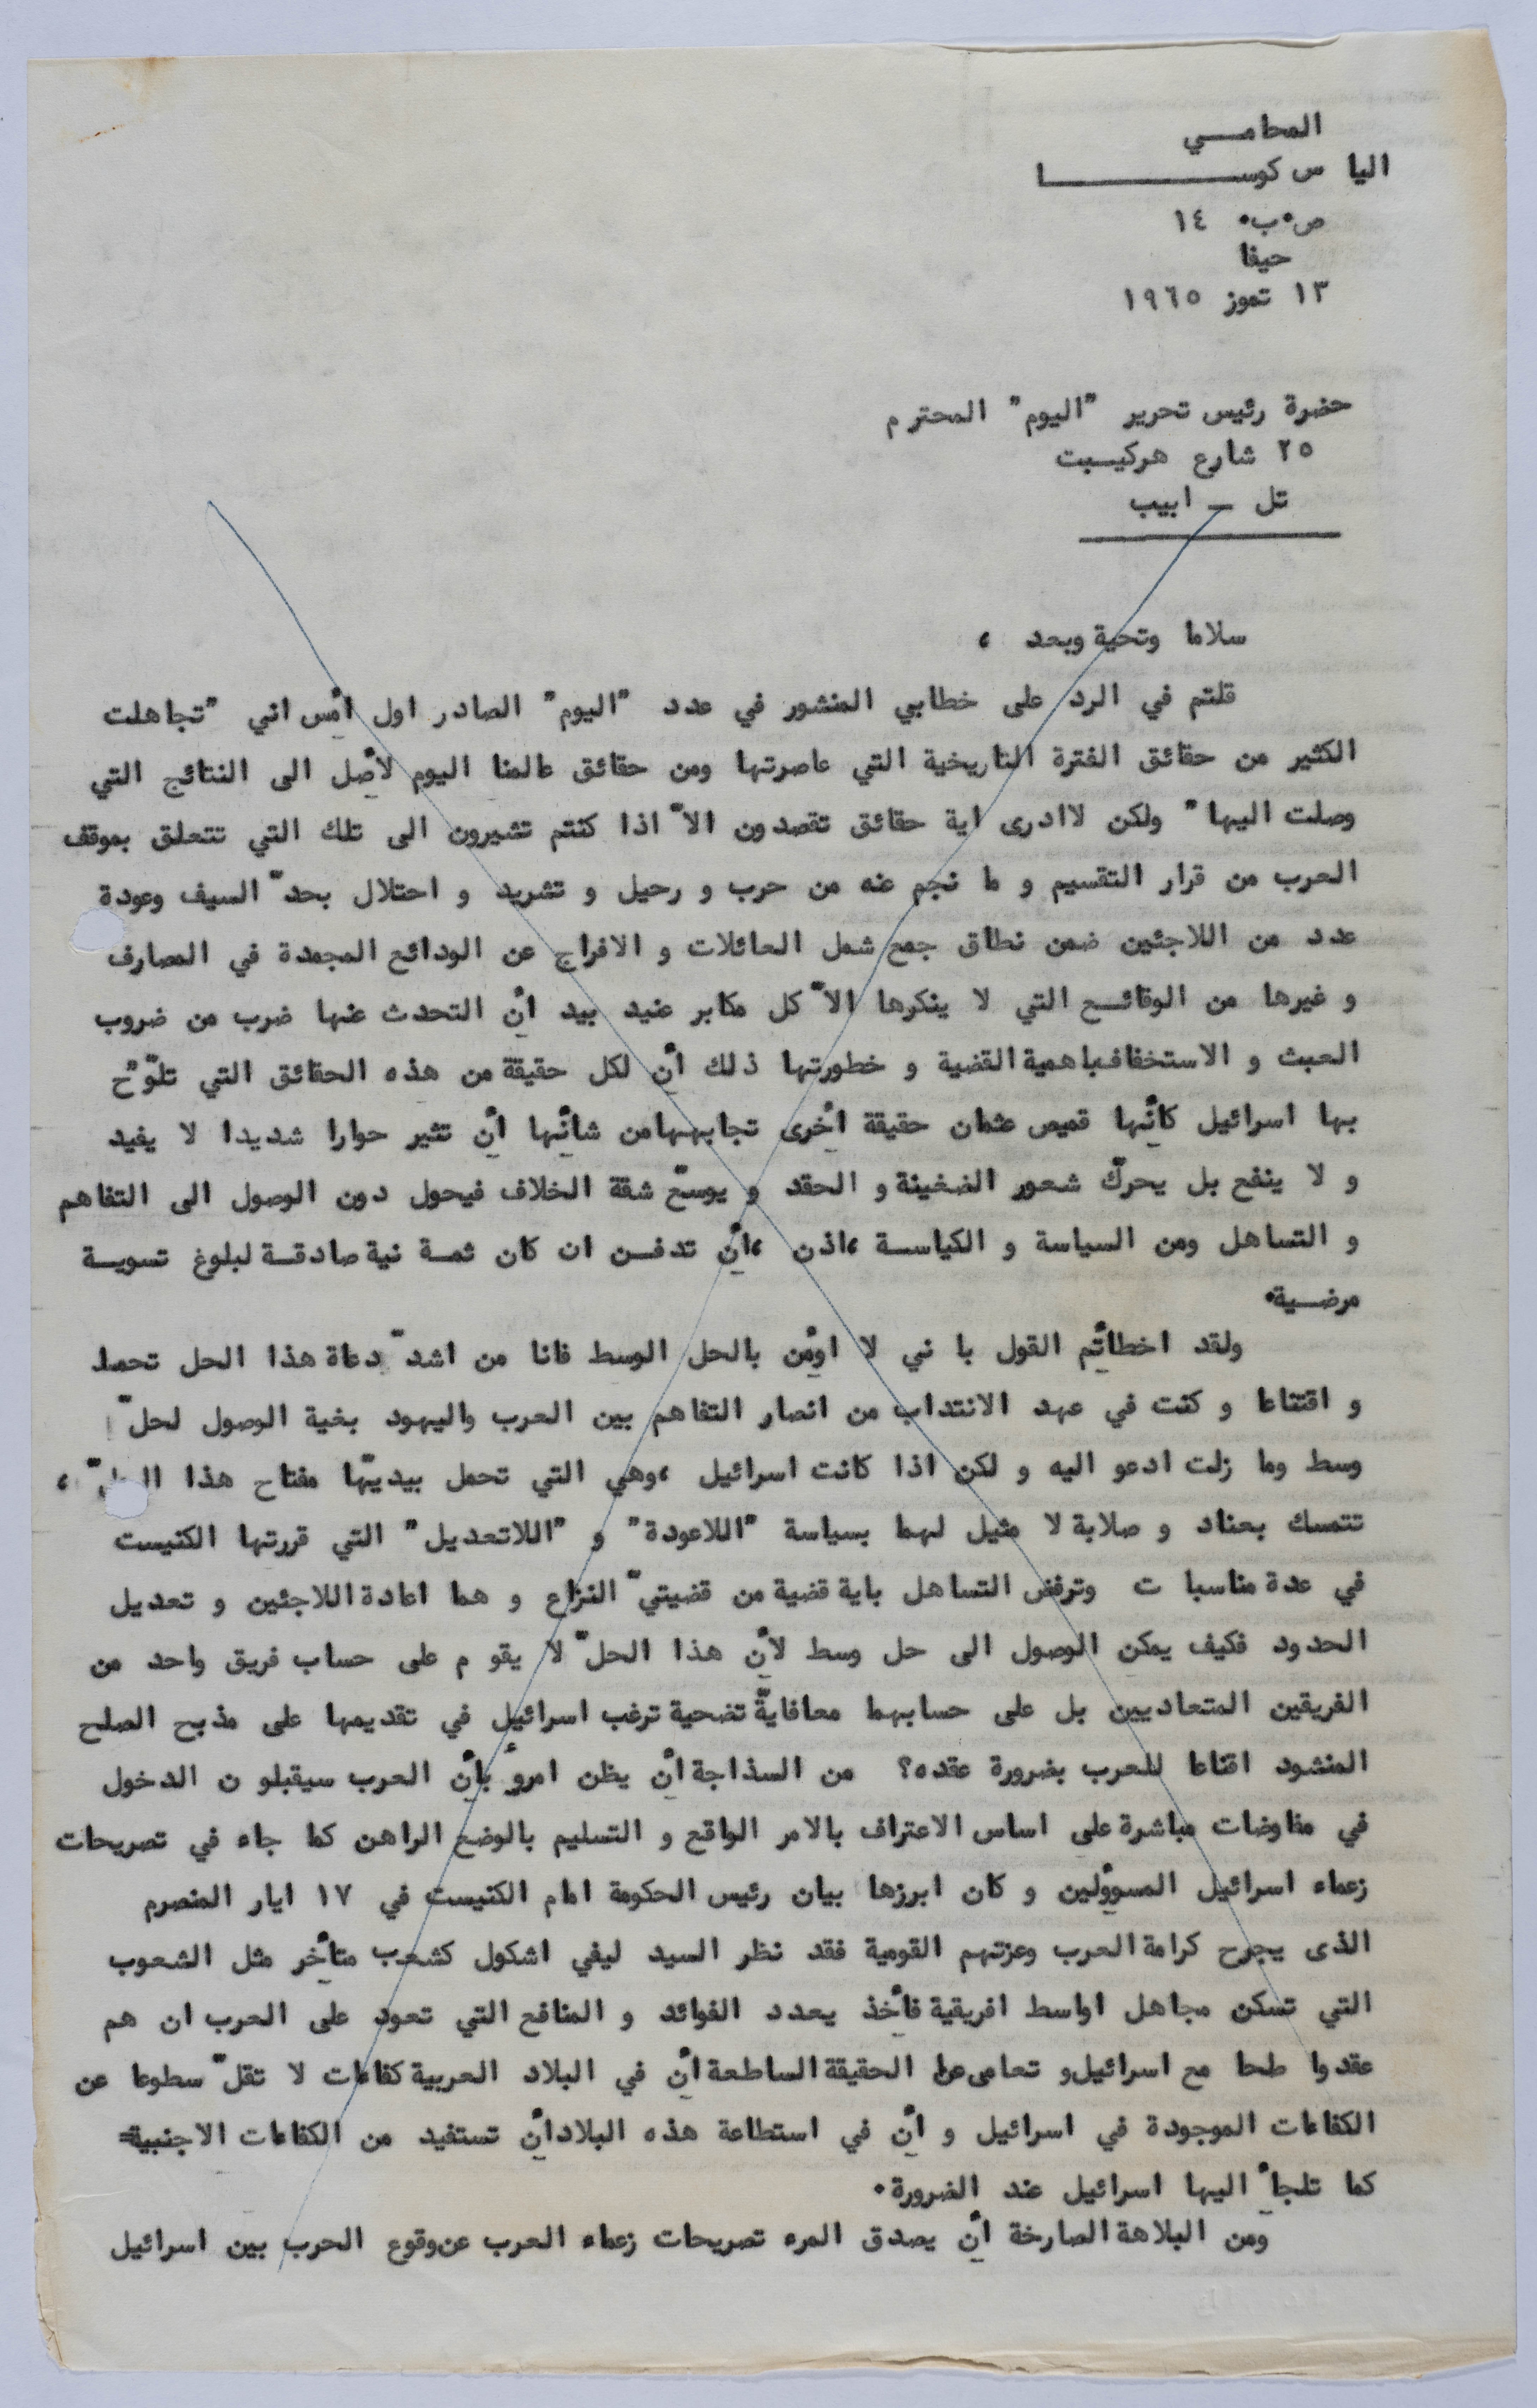 المحامــي
الياس كوســـــــــا
ص٠ب٠ ١٤
حيفا
١٣ تموز ١٩٦٥
حضرة رئيس تحرير "اليوم" المحترم
٢٥ شارع هركيـبت
تل – ابيب
سلاما وتحية وبعد ،
قلتم في الرد على خطابي المنشور في عدد "اليوم" الصادر اول أمس اني "تجاهلت
الكثير من حقائق الفترة التاريخية التي عاصرتها ومن حقائق عالمنا اليوم لأصل الى النتائج التي
وصلت اليها" ولكن لاادرى اية حقائق تقصدون الاّ اذا كنتم تشيرون الى تلك التي تتعلق بموقف
العرب من قرار التقسيم و ما نجم عنه من حرب و رحيل و تشريد و احتلال بحدّ السيف وعودة
عدد من اللاجئين ضمن نطاق جمع شمل العائلات و الافراج عن الودائع المجمدة في المصارف
و غيرها من الوقائـع التي لا ينكرها الاّ كل مكابر عنيد بيد أن التحدث عنها ضرب من ضروب
العبث و الاستخفاف باهمية القضية و خطورتها ذلك أن لكل حقيقة من هذه الحقائق التي تلوّح
بها اسرائيل كأنها قميص عثمان حقيقة أخرى تجابهها من شأنها أن تثير حوارا شديدا لا يفيد
و لا ينفع بل يحرّك شعور الضغينة و الحقد و يوسّع شقة الخلاف فيحول دون الوصول الى التفاهم
و التساهل ومن السياسة و الكياسـة ،اذن ،أن تدفـن ان كان ثمـة نية صادقـة لبلوغ تسويـة
مرضـية٠
ولقد اخطأتم القول با ني لا اوٴمن بالحل الوسط فانا من اشدّ دعاة هذا الحل تحمسا
و اقتناعا و كنت في عهد الانتداب من انصار التفاهم بين العرب واليهود بغية الوصول لحلّ
وسط وما زلت ادعو اليه و لكن اذا كانت اسرائيل ،وهي التي تحمل بيديّها مفتاح هذا الحلّ ،
تتمسك بعناد و صلابة لا مثيل لهما بسياسة "اللاعودة" و "اللاتعديل" التي قررتها الكنيست
في عدة مناسبا ت وترفض التساهل باية قضية من قضيتيّ النزاع و هما اعادة اللاجئين و تعديل
الحدود فكيف يمكن الوصول الى حل وسط لأن هذا الحلّ لا يقو م على حساب فريق واحد من
الفريقين المتعاديين بل على حسابهما معا فايةّ تضحية ترغب اسرائيل في تقديمها على مذبح الصلح
المنشود اقناعا للعرب بضرورة عقده؟ من السذاجة أن يظن امروٴ بأن العرب سيقبلو ن الدخول
في مفاوضات مباشرة على اساس الاعتراف بالامر الواقع و التسليم بالوضع الراهن كما جاء في تصريحات
زعماء اسرائيل المسوٴولين و كان ابرزها بيان رئيس الحكومة امام الكنيست في ١٧ ايار المنصرم
الذى يجرح كرامة العرب وعزتهم القومية فقد نظر السيد ليفي اشكول كشعب متأخر مثل الشعوب
التي تسكن مجاهل اواسط افريقية فأخذ يعدد الفوائد و المنافع التي تعود على العرب ان هم
عقدوا صلحا مع اسرائيل و تعامى عن الحقيقة الساطعة أن في البلاد العربية كفاءات لا تقلّ سطوعا عن
الكفاءات الموجودة في اسرائيل و أن في استطاعة هذه البلاد أن تستفيد من الكفاءات الاجنبية=
كما تلجأ اليها اسرائيل عند الضرورة٠
ومن البلاهة الصارخة أن يصدق المرء تصريحات زعماء العرب عن وقوع الحرب بين اسرائيل